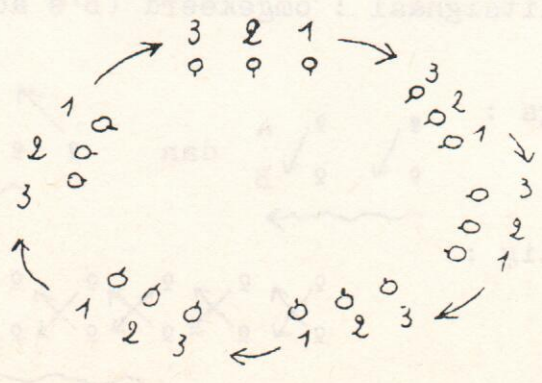 3 2 1
3
2
1
3
2
1
1
2
3
1 2 3
1
2
3